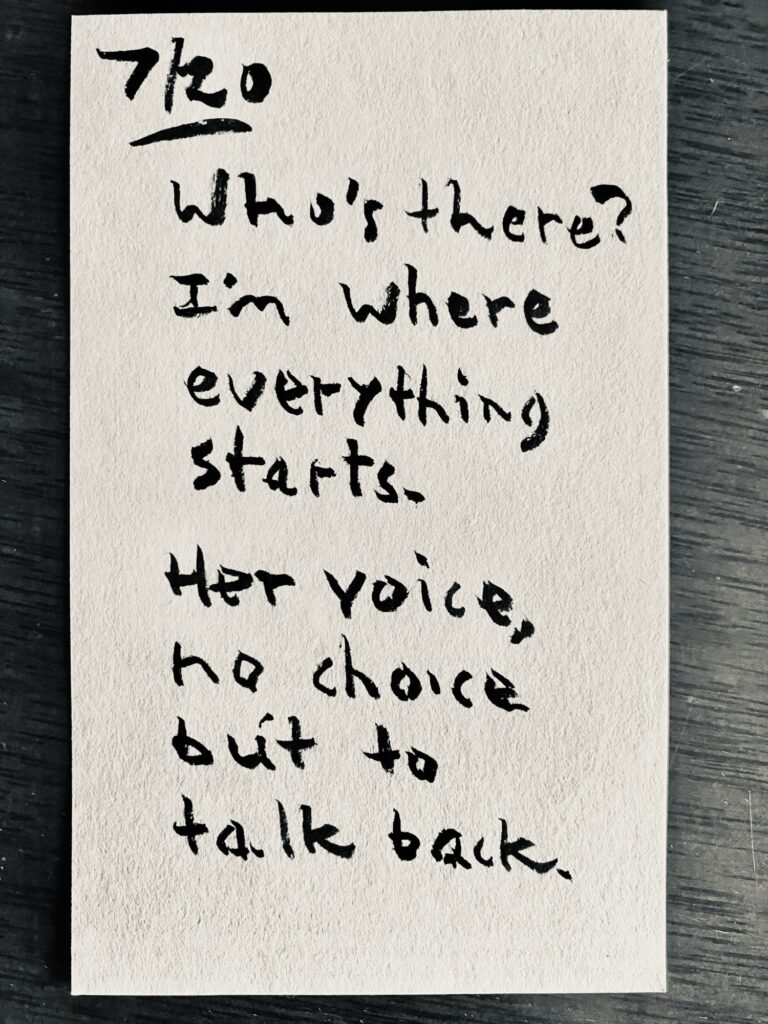 7/20
Who's there?
I'm where
everything
starts.
Her voice,
no choice
but to
talk back.